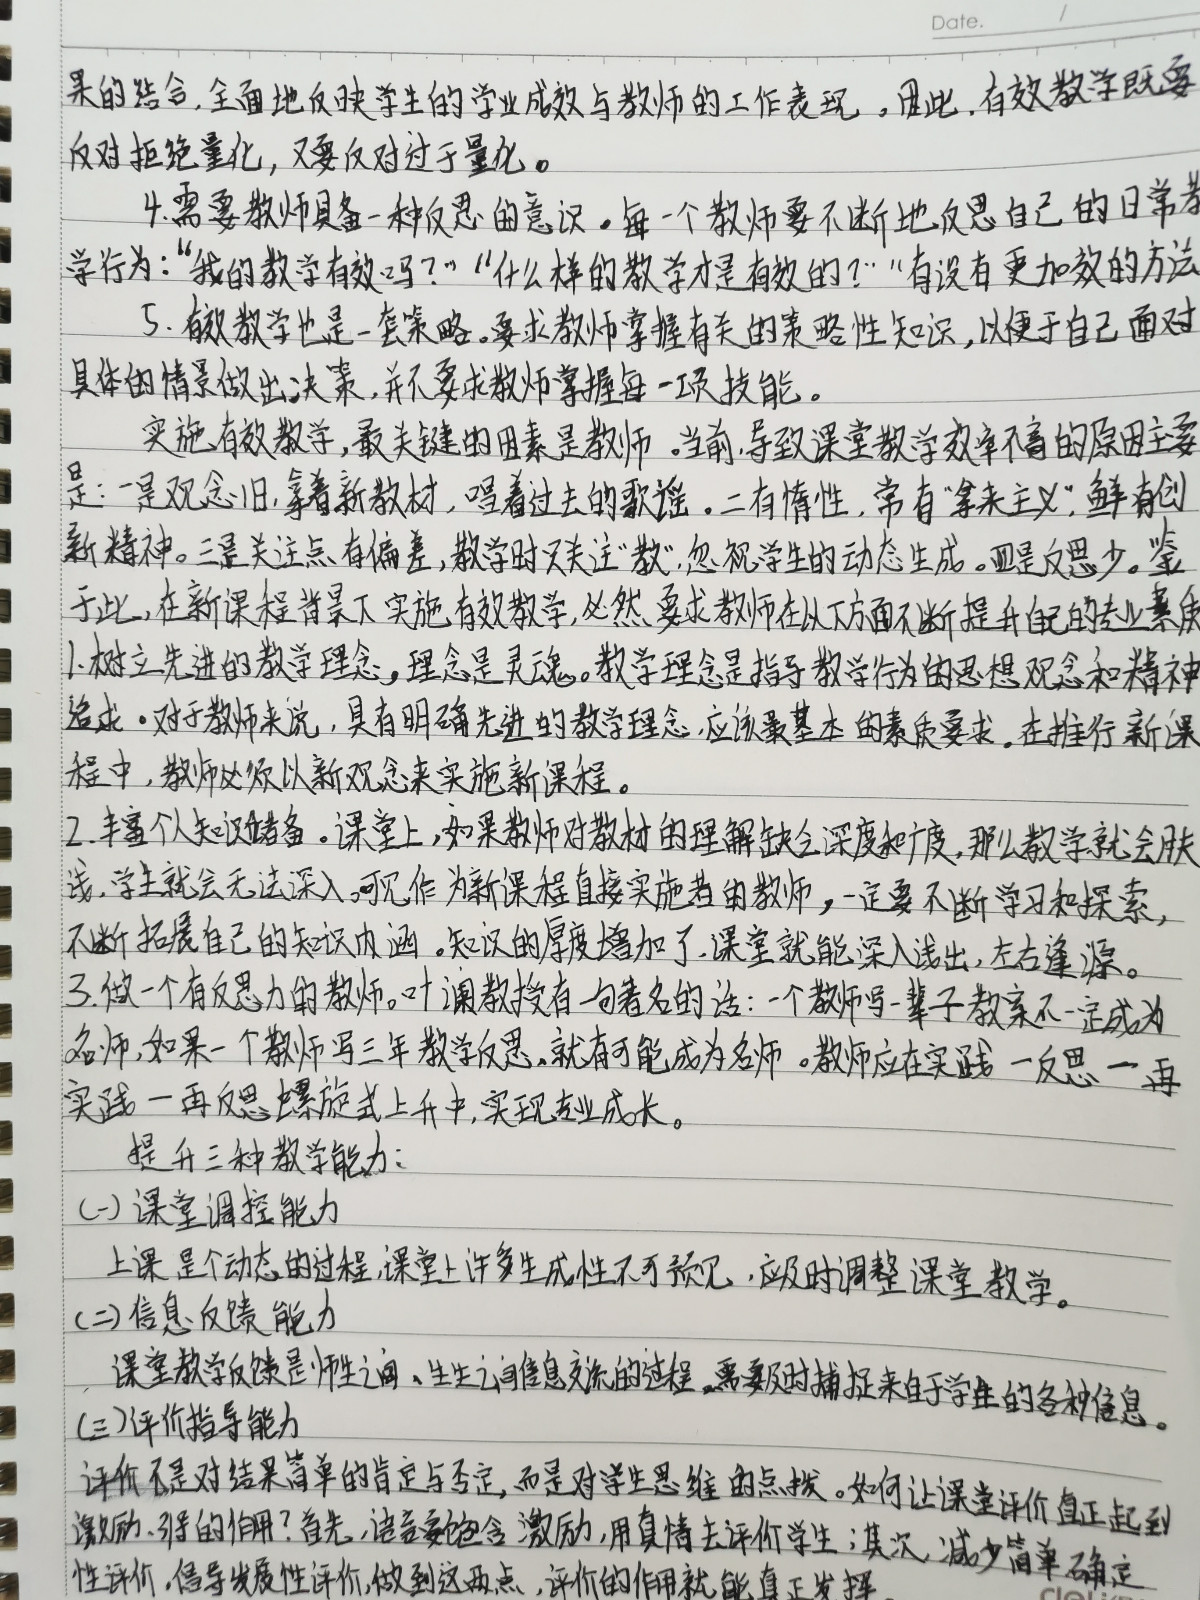 Date. /
果的结合,全面地反映学生的学业成效与教师的工作表现。因此,有效教学既要
反对拒绝量化,又要反对过于量化。
4.需要教师具备一种反思的意识。每一个教师要不断地反思自己的日常教
学行为:“我的教学有效吗?”“什么样的教学才是有效的?”“有没有更加效的方法
5.有效教学也是一套策略。要求教师掌握有关的策略性知识,以便于自己面对
具体的情景做出决策,并不要求教师掌握每一项技能。
实施有效教学,最关键的因素是教师。当前,导致课堂教学效率不高的原因主要
是:一是观念旧,拿着新教材,唱着过去的歌谣。二有惰性,常有“拿来主义”,鲜有创
新精神。三是关注点有偏差,教学时只关注“教”,忽视学生的动态生成。四是反思少。鉴
于此,在新课程背景下实施有效教学,必然要求教师在以下方面不断提升自己的专业素质
1.树立先进的教学理念。理念是灵魂。教学理念是指导教学行为的思想观念和精神
追求。对于教师来说,具有明确先进的教学理念,应该最基本的素质要求。在推行新课
程中,教师必须以新观念来实施新课程。
2.丰富个人知识储备。课堂上,如果教师对教材的理解缺乏深度和广度,那么教学就会肤
浅,学生就会无法深入。可见作为新课程直接实施者的教师,一定要不断学习和探索,
不断拓展自己的知识内涵。知识的厚度增加了,课堂就能深入浅出,左右逢源。
3.做一个有反思力的教师。叶澜教授有一句著名的话:一个教师写一辈子教案不一定成为
名师,如果一个教师写三年教学反思,就有可能成为名师。教师应在实践一反思一再
实践一再反思螺旋式上升中,实现专业成长。
提升三种教学能力:
(一)课堂调控能力
上课是个动态的过程,课堂上许多生成性不可预见,应及时调整课堂教学。
(二)信息反馈能力
课堂教学反馈是师生之间、生生之间信息交流的过程。需要及时捕捉来自于学生的各种信息。
(三)评价指导能力
评价不是对结果简单的肯定与否定,而是对学生思维的点拨。如何让课堂评价真正起到
激励、引导的作用?首先,语言要饱含激励,用真情去评价学生;其次,减少简单确定
性评价,倡导发展性评价,做到这两点,评价的作用就能真正发挥。
deli